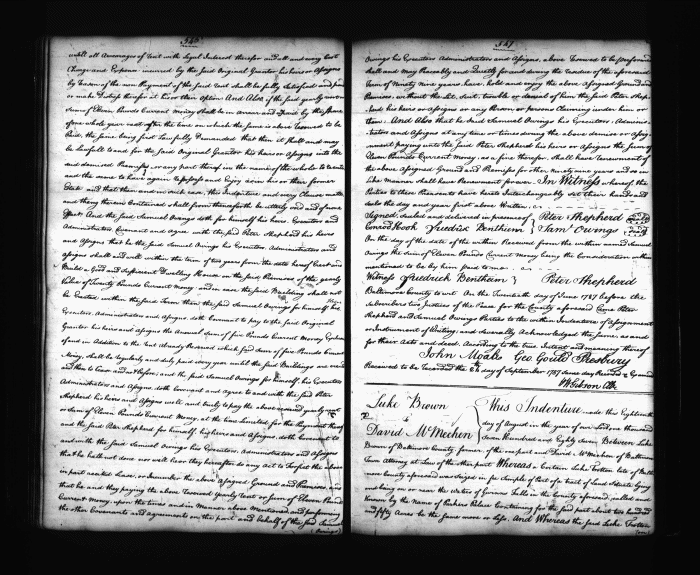 546
untill all Arrearages of rent with Legal Interest therefor and all and every Cost
Charge and Expence incurred by the said Original Grantor his heirs or Assigns
by reason of the non Payment of the said rent shall be fully Satisfied and paid
or make Distress therefor at his or their option And Also if the said yearly rent or
Sum of Eleven Pounds Current Money shall be in arrear and unpaid by the space
of one whole year next after the time on which the same is above reserved to be
Paid, the same being first Lawfully Demanded that then it shall and may
be lawfull to and for the said Original Grantor his heirs or Assigns into the
said demised Premises or any part thereof in the name of the whole to reenter
and the same to have again repossess and Enjoy as in his or their former
Estate and that then and in such case, this Indenture and every Clause matter
and thing therein Contained shall from thenceforth be utterly void and of none
Effect. And the said Samuel Owings doth for himself his heirs Executors and
Administrators Covenant and agree with the said Peter Shepherd his heirs
and Assigns that he the said Samuel Owings his Executors Administrators and
Assigns shall and will within the term of two years from the date hereof Erect and
Build a Good and sufficient Dwelling House on the said Premises of the yearly
Value of Twenty Pounds Current Money and in case the said Buildings shall not
be Erected within the said Term then the said Samuel Owings for himself his
Executors Administrators and Assigns, doth Covenant to pay to the said Original
Grantor his heirs and Assigns the Annual sum of five Pounds Current Money
of and in Addition to the rent already Reserved which said Sum of five Pounds Current
Money, shall be regularly and duly paid every year untill the said Buildings are
and then to Cease and not before; and the said Samuel Owings for himself his Executors
Administrators and Assigns doth Covenant and agree to and with the said Peter
Shepherd his heirs and Assigns well and truly to pay the above reserved yearly rent
or Sum of Eleven Pounds Current Money at the time limited for the Payment thereof
and the said Peter Shepherd for himself his heirs and Assigns, doth Covenant to
and with the said Samuel Owings his Executors Administrators and Assigns
that he hath not done nor will he or they hereafter do any act to Forfeit the above
in part recited Lease, or Incumber the above Assigned Ground and Premises and
that he and they paying the above reserved yearly rent or sum of Eleven Pounds
Current Money upon the times and in Manner above Mentioned and performing
the other Covenants and agreements on the part and behalf of the said Samuel
(Owings)
547
Owings his Executors Administrators and Assigns, above reserved to be performed
shall and may Peaceably and Quietly for and during the residue of the aforesaid
Term of Ninety nine years have, hold and enjoy the above Assigned Ground and
Premises without the let, suit, trouble or denial of him the said Peter Shepherd
his heirs or Assigns or any Person or persons Claiming under him or
them. And Also that he said Samuel Owings his Executors, Administrators
and Assigns at any time or times during the above demise or Assignment
paying unto the said Peter Shepherd his heirs or Assigns the sum of
Eleven Pounds Current Money, as a fine therefor, shall have renewment of
the above Assigned Ground and Premises for other Ninety nine years and so on
like manner shall have Renewment forever. In Witness whereof the
Parties to these Presents to have hereto Interchangeably set their hands and
seals the day and year first above Written.
Signed, sealed and delivered in presence of Peter Shepherd Seal
Conrod Hook Fredrick Bentheim Saml Owings Seal
On the day of the date of the within Received from the within named Samuel
Owings the sum of Eleven Pounds Current Money being the Consideration
mentioned to be by him paid to me
Witness Fredrick Bentheim Peter Shepherd
Baltimore County to wit. On the Twentieth day of June 1787 before the
subscribers two Justices of the Peace for the County aforesaid Came Peter
Shepherd and Samuel Owings Parties to the within Indenture of Assignment
or Instrument of Writing; and severally Acknowledged the same, as and
for their Acts and deed. According to the true Intent and meaning thereof
John Moale Geo Gould Presbury
Received to be Recorded the 26 day of September 1787 same day Recorded & Examd
W Gibson Clk
Luke Brown
to
David McMechen
This Indenture made this Eighteenth
day of August in the year of our Lord one thousand
Seven Hundred and Eighty Seven Between Luke
Brown of Baltimore County farmer of the one part and David McMechen of Baltimore
Town Attorney at Law of the other part Whereas a Certain Luke Trotten late of Baltimore
County aforesaid was seized in fee simple of Part of a tract of Land Situate lying
and being on or near the waters of Gorsuch Falls in the County aforesaid, called and
known by the name of Parkers Palace Containing for the said part about two hundred
and fifty Acres be the same more or less. And Whereas the said Luke Trotten